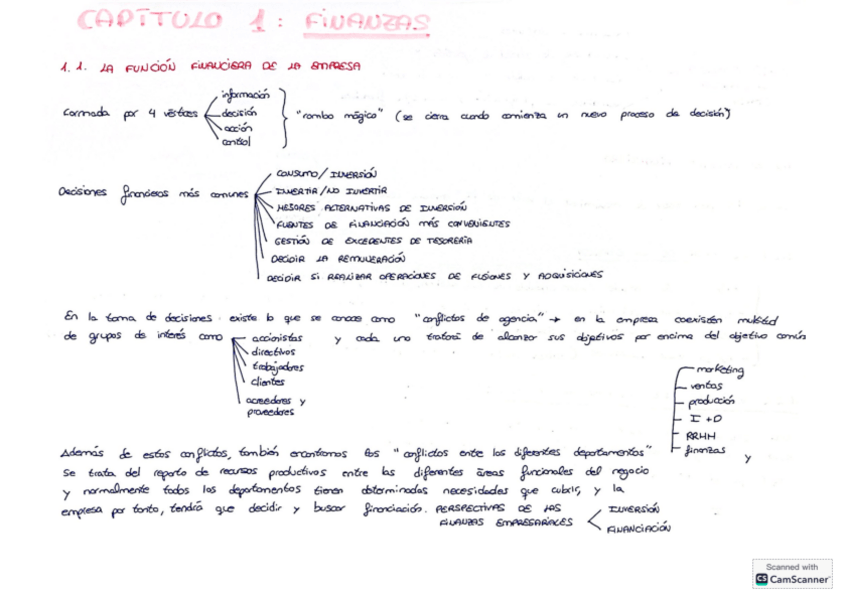 CAPÍTULO 1: FINANZAS
1.1. LA FUNCIÓN FINANCIERA DE LA EMPRESA
Formada por 4 vértices
información
decisión
acción
control
"rombo mágico" (se cierra cuando comienza un nuevo proceso de decisión)
Decisiones financieras más comunes
CONSUMO/INVERSIÓN
INVERTIR/NO INVERTIR
MEJORES ALTERNATIVAS DE INVERSIÓN
FUENTES DE FINANCIACIÓN MÁS CONVENIENTES
GESTIÓN DE EXCEDENTES DE TESORERÍA
DECIDIR LA REMUNERACIÓN
DECIDIR SI REALIZAR OPERACIONES DE FUSIONES Y ADQUISICIONES
En la toma de decisiones existe lo que se conoce como "conflictos de agencia" → en la empresa coexisten multitud
de grupos de interés como
accionistas
directivos
trabajadores
clientes
acreedores y
proveedores
y cada uno tratará de alcanzar sus objetivos por encima del objetivo común
Además de estos conflictos, también encontramos los "conflictos entre los diferentes departamentos"
marketing
ventas
producción
I+D
RRHH
finanzas
y
Se trata del reparto de recursos productivos entre las diferentes áreas funcionales del negocio
y normalmente todos los departamentos tienen determinadas necesidades que cubrir, y la
empresa por tanto, tendrá que decidir y buscar financiación. PERSPECTIVAS DE LAS
FINANZAS EMPRESARIALES
INVERSIÓN
FINANCIACIÓN
Scanned with
CS CamScanner